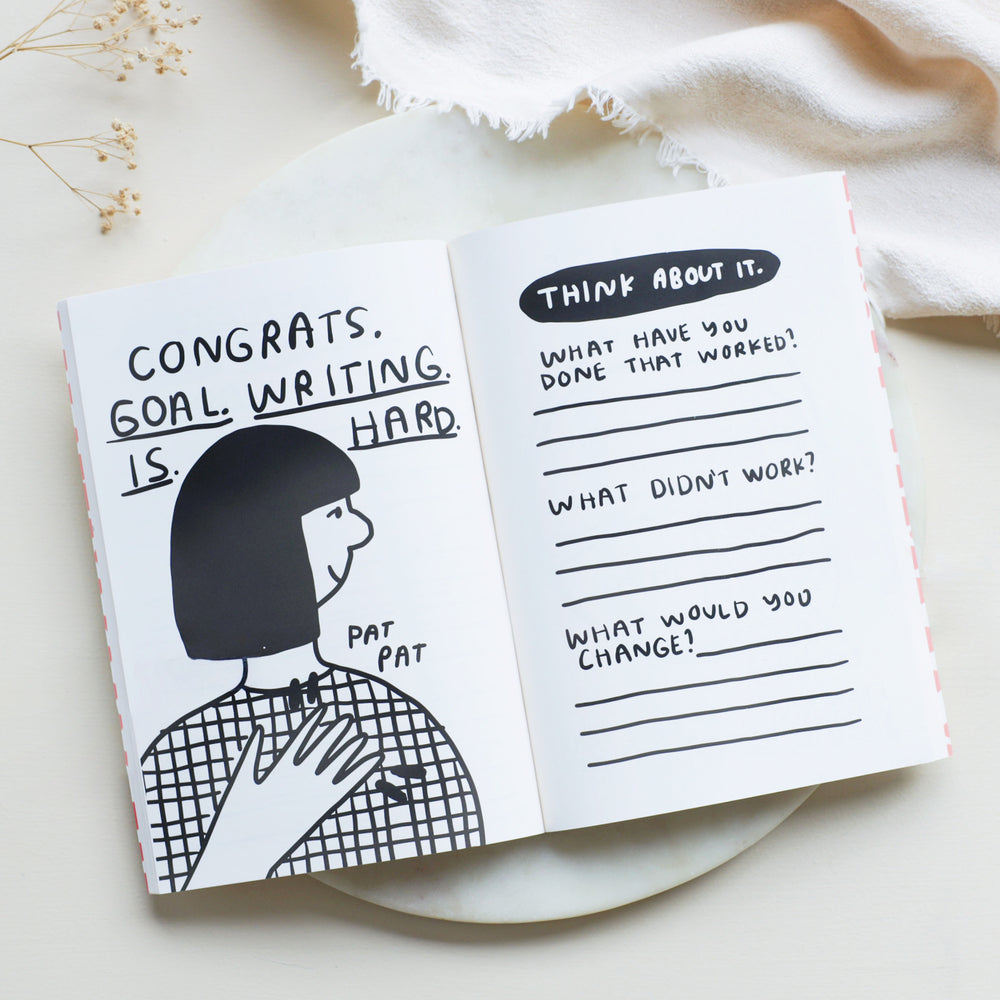 CONGRATS.
GOAL. WRITING.
IS. HARD.
PAT
PAT
THINK ABOUT IT.
WHAT HAVE YOU
DONE THAT WORKED?
WHAT DIDN'T WORK?
WHAT WOULD YOU
CHANGE?